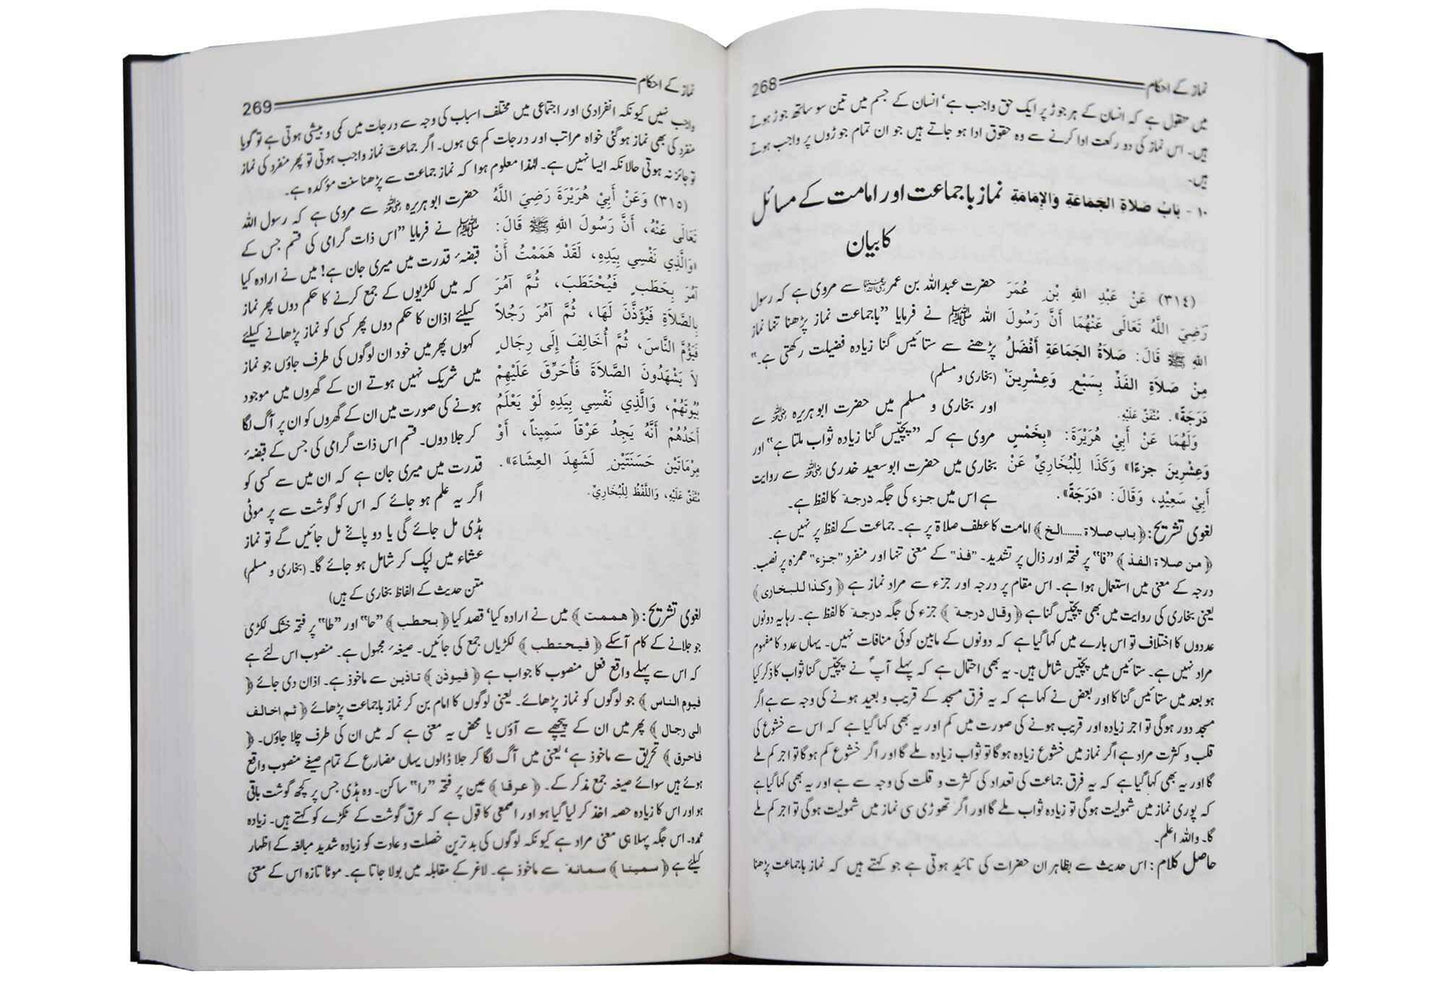 268
نماز کے احکام
میں منقول ہے کہ انسان کے ہر جوڑ پر ایک حق واجب ہے' انسان کے جسم میں تین سو ساٹھ جوڑ ہوتے
ہیں۔ اس نماز کی دو رکعت ادا کرنے سے وہ حقوق ادا ہو جاتے ہیں جو ان تمام جوڑوں پر واجب ہوتے
ہیں۔
١٠ - بَابُ صَلَاةِ الجَمَاعَةِ وَالإِمَامَةِ نماز باجماعت اور امامت کے مسائل
کا بیان
(٣١٤) عَنْ عَبْدِ اللهِ بْنِ عُمَرَ
رَضِيَ اللَّهُ تَعَالَى عَنْهُمَا أَنَّ رَسُولَ
اللهِ ﷺ قَالَ: صَلَاةُ الجَمَاعَةِ أَفْضَلُ
مِنْ صَلَاةِ الفَذِّ بِسَبْعٍ وَعِشْرِينَ
دَرَجَةً». مُتَّفَقٌ عَلَيْهِ.
وَلَهُمَا عَنْ أَبِي هُرَيْرَةَ: «بِخَمْسٍ
وَعِشْرِينَ جزءًا» وَكَذَا لِلْبُخَارِيِّ عَنْ
أَبِي سَعِيدٍ، وَقَالَ: «دَرَجَةً».
حضرت عبداللہ بن عمر رضی اللہ عنہما سے مروی ہے کہ رسول
اللہ ﷺ نے فرمایا "باجماعت نماز پڑھنا تنہا نماز
پڑھنے سے ستائیس گنا زیادہ فضیلت رکھتی ہے۔"
(بخاری و مسلم)
اور بخاری و مسلم میں حضرت ابو ہریرہ رضی اللہ عنہ سے
مروی ہے کہ "پچیس گنا زیادہ ثواب ملتا ہے" اور
بخاری میں حضرت ابوسعید خدری رضی اللہ عنہ سے روایت
ہے اس میں جزء کی جگہ درجة کا لفظ ہے۔
لغوی تشریح: ﴿باب صلاة ........ الخ﴾ امامت کا عطف صلاة پر ہے۔ جماعت کے لفظ پر نہیں ہے۔
﴿من صلاة الفذ﴾ "فا" پر فتحہ اور ذال پر تشدید۔ "فذ" کے معنی تنہا اور منفرد "جزء" همزہ پر نصب۔
درجہ کے معنی میں استعمال ہوا ہے۔ اس مقام پر درجہ اور جزء سے مراد نماز ہے ﴿وكذا للبخاری﴾
یعنی بخاری کی روایت میں بھی پچیس گنا ہے ﴿وقال درجة﴾ جزء کی جگہ درجة کا لفظ ہے۔ رہا یہ دونوں
عددوں کا اختلاف تو اس بارے میں کہا گیا ہے کہ دونوں کے مابین کوئی منافات نہیں۔ یہاں عدد کا مفہوم
مراد نہیں ہے۔ ستائیس میں پچیس شامل ہیں۔ یہ بھی احتمال ہے کہ پہلے آپ نے پچیس گنا ثواب کا ذکر کیا
ہو بعد میں ستائیس گنا کا اور بعض نے کہا ہے کہ یہ فرق مسجد کے قریب و بعید ہونے کی وجہ سے ہے اگر
مسجد دور ہوگی تو اجر زیادہ اور قریب ہونے کی صورت میں کم اور یہ بھی کہا گیا ہے کہ اس سے خشوع کی
قلت و کثرت مراد ہے اگر نماز میں خشوع زیادہ ہوگا تو ثواب زیادہ ملے گا اور اگر خشوع کم ہوگا تو اجر کم ملے
گا اور یہ بھی کہا گیا ہے کہ یہ فرق جماعت کی تعداد کی کثرت و قلت کی وجہ سے ہے اور یہ بھی کہا گیا ہے
کہ پوری نماز میں شمولیت ہوگی تو زیادہ ثواب ملے گا اور اگر تھوڑی سی نماز میں شمولیت ہوگی تو اجر کم ملے
گا۔ واللہ اعلم۔
حاصل کلام: اس حدیث سے بظاہر ان حضرات کی تائید ہوتی ہے جو کہتے ہیں کہ نماز باجماعت پڑھنا
269
نماز کے احکام
واجب نہیں کیونکہ انفرادی اور اجتماعی میں مختلف اسباب کی وجہ سے درجات میں کمی و بیشی ہوتی ہے تو گویا
منفرد کی بھی نماز ہوگئی خواہ مراتب اور درجات کم ہی ہوں۔ اگر جماعت نماز واجب ہوتی تو پھر منفرد کی نماز
تو جائز نہ ہوتی حالانکہ ایسا نہیں ہے۔ لہٰذا معلوم ہوا کہ نماز جماعت سے پڑھنا سنت مؤکدہ ہے۔
(٣١٥) وَعَنْ أَبِي هُرَيْرَةَ رَضِيَ اللَّهُ
تَعَالَى عَنْهُ، أَنَّ رَسُولَ اللهِ ﷺ قَالَ:
«وَالَّذِي نَفْسِي بِيَدِهِ، لَقَدْ هَمَمْتُ أَنْ
آمُرَ بِحَطَبٍ فَيُحْتَطَبَ، ثُمَّ آمُرَ
بِالصَّلَاةِ فَيُؤَذَّنَ لَهَا، ثُمَّ آمُرَ رَجُلاً
فَيَؤُمَّ النَّاسَ، ثُمَّ أُخَالِفَ إِلَى رِجَالٍ
لاَ يَشْهَدُونَ الصَّلَاةَ فَأُحَرِّقَ عَلَيْهِمْ
بُيُوتَهُمْ، وَالَّذِي نَفْسِي بِيَدِهِ لَوْ يَعْلَمُ
أَحَدُهُمْ أَنَّهُ يَجِدُ عَرْقاً سَمِيناً، أَوْ
مِرْمَاتَيْنِ حَسَنَتَيْنِ لَشَهِدَ العِشَاءَ».
مُتَّفَقٌ عَلَيْهِ، وَاللَّفْظُ لِلْبُخَارِيِّ.
حضرت ابو ہریرہ رضی اللہ عنہ سے مروی ہے کہ رسول اللہ
ﷺ نے فرمایا "اس ذات گرامی کی قسم جس کے
قبضہ ٔ قدرت میں میری جان ہے! میں نے ارادہ کیا
کہ میں لکڑیوں کے جمع کرنے کا حکم دوں پھر نماز
کیلئے اذان کا حکم دوں پھر کسی کو نماز پڑھانے کیلئے
کہوں پھر میں خود ان لوگوں کی طرف جاؤں جو نماز
میں شریک نہیں ہوتے ان کے گھروں میں موجود
ہونے کی صورت میں ان کے گھروں کو ان پر آگ لگا
کر جلا دوں۔ قسم اس ذات گرامی کی جس کے قبضہ ٔ
قدرت میں میری جان ہے کہ ان میں سے کسی کو
اگر یہ علم ہو جائے کہ اس کو گوشت سے پر موٹی
ہڈی مل جائے گی یا دو پائے مل جائیں گے تو نماز
عشاء میں لپک کر شامل ہو جائے گا۔ (بخاری و مسلم)
متن حدیث کے الفاظ بخاری کے ہیں)
لغوی تشریح: ﴿هممت﴾ میں نے ارادہ کیا' قصد کیا ﴿بحطب﴾ "حا" اور "طا" پر فتحہ خشک لکڑی
جو جلانے کے کام آسکے ﴿فیحتطب﴾ لکڑیاں جمع کی جائیں۔ صیغہ ٔ مجہول ہے۔ منصوب اس لئے ہے
کہ اس سے پہلے واقع فعل منصوب کا جواب ہے ﴿فیوذن﴾ تاذین سے ماخوذ ہے۔ اذان دی جائے ﴿
فیوم الناس﴾ جو لوگوں کو نماز پڑھائے۔ یعنی لوگوں کا امام بن کر نماز باجماعت پڑھائے ﴿ثم اخالف
الی رجال﴾ پھر میں ان کے پیچھے سے آؤں یا محض یہ معنی ہے کہ میں ان کی طرف چلا جاؤں۔ ﴿
فاحرق﴾ تحریق سے ماخوذ ہے' یعنی میں آگ لگا کر جلا ڈالوں یہاں مضارع کے تمام صیغے منصوب واقع
ہوئے ہیں سوائے صیغہ جمع مذکر کے۔ ﴿عرقا﴾ عین پر فتحہ "را" ساکن۔ وہ ہڈی جس پر کچھ گوشت باقی
ہو اور اس کا زیادہ حصہ اخذ کر لیا گیا ہو اور اصمعی کا قول ہے کہ عرق گوشت کے ٹکڑے کو کہتے ہیں۔ زیادہ
عمدہ۔ اس جگہ پہلا ہی معنی مراد ہے کیونکہ لوگوں کی بدترین خصلت و عادت کو زیادہ شدید مبالغہ کے اظہار
کیلئے ہے ﴿سمینا﴾ سمانة سے ماخوذ ہے۔ لاغر کے مقابلہ میں بولا جاتا ہے۔ موٹا تازہ اس کے معنی